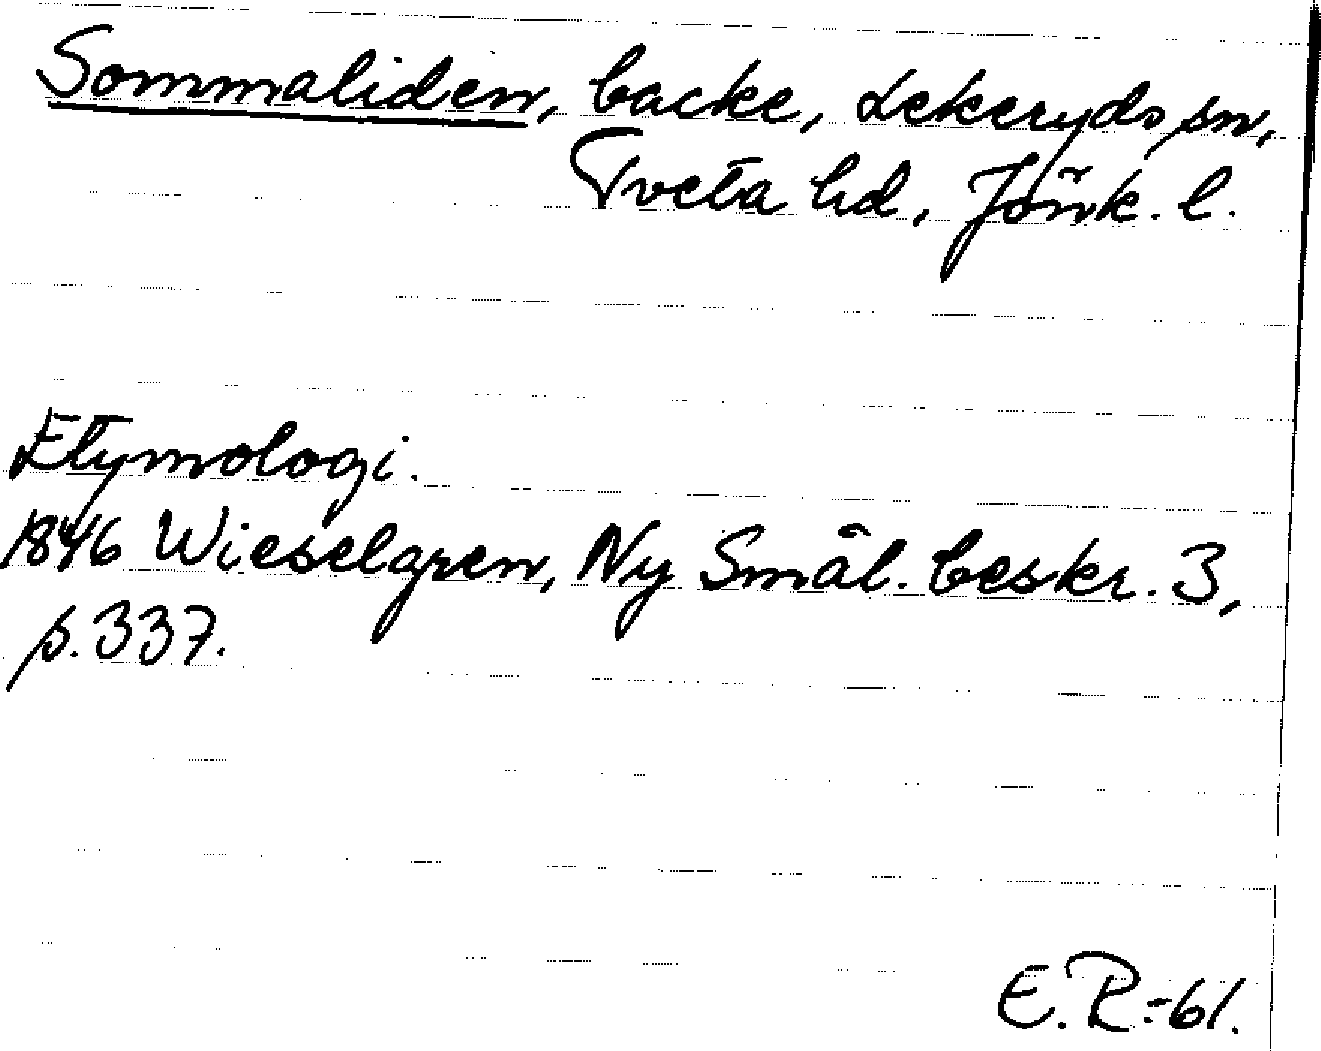 Sommaliden, backe, Lekeryds sn,
Tveta hd, Jönk. l.
Etymologi.
1846 Wieselgren, Ny Smål. beskr. 3,
s. 337.
E. R. -61.